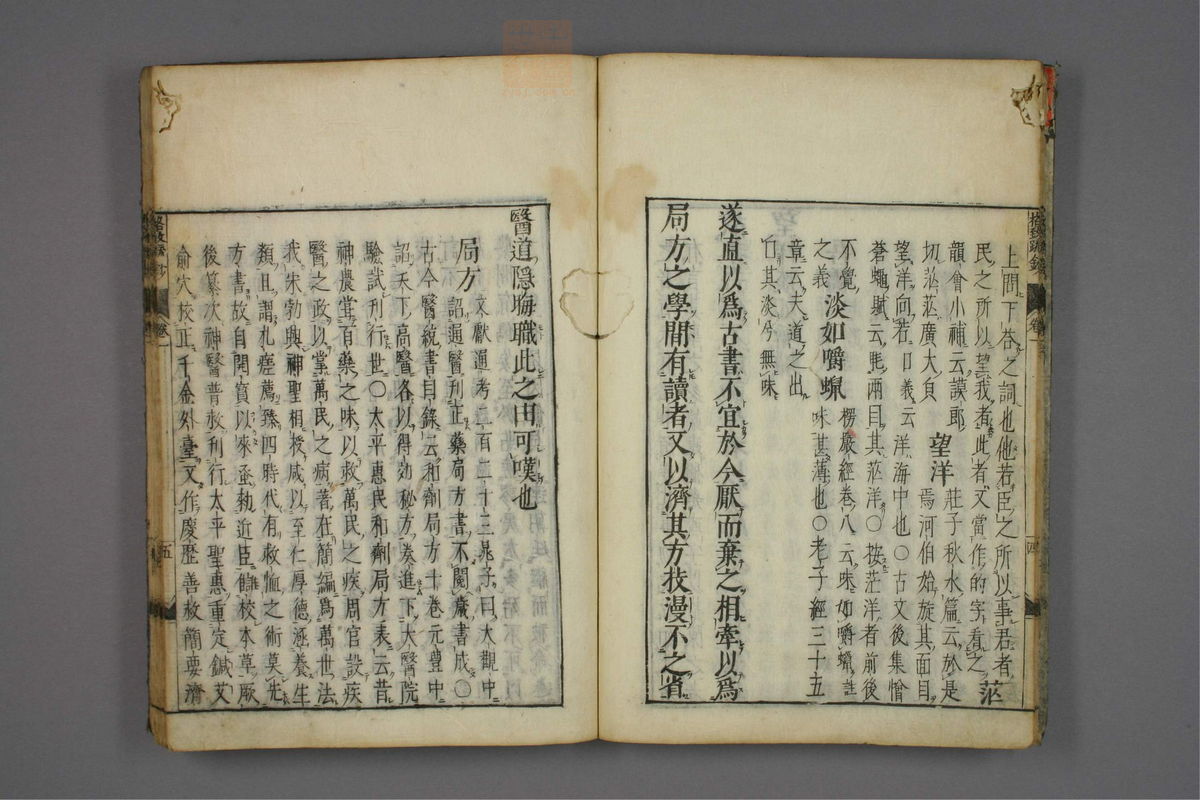 上問下荅之詞也他若臣之所以事君者
民之所以望我者此者又當作的字看之 茫
韻會小補云謨郎
切泓茫廣大皃 望洋 莊子秋水篇云於是
焉河伯始旋其面目
望洋向若口義云洋海中也〇古文後集憎
蒼蠅賦云眊兩目其茫洋〇按茫洋者前後
不覺
之義 淡如嚼蝋 楞嚴經卷八云味如嚼蠟註
味甚薄也〇老子經三十五
章云夫道之出
口其淡兮無味
遂直以爲古書不宜於今厭而棄之相牽以爲
局方之學間有讀者又以濟其方技漫不之省
醫道隱晦職此之由可嘆也
局方 文獻通考二百二十三晁子曰大觀中
詔通醫刊正藥局方書不閱歲書成〇
古今醫統書目錄云和劑局方十卷元豊中
詔天下高醫各以得効秘方奏進下大醫院
驗試刊行世〇太平惠民和劑局方表云昔
神農甞百藥之味以救萬民之疾周官設疾
醫之政以掌萬民之病著在簡編爲萬世法
我宋勃興神聖相授咸以至仁厚德涵養生
類且謂札瘥薦臻四時代有救恤之術莫先
方書故自開寳以來蚤勅近臣讎校本草厥
後纂次神醫普救刋行太平聖惠重定鍼艾
俞穴校正千金外臺又作慶歷善救簡要濟
格致餘論 卷一 五
卷一 四